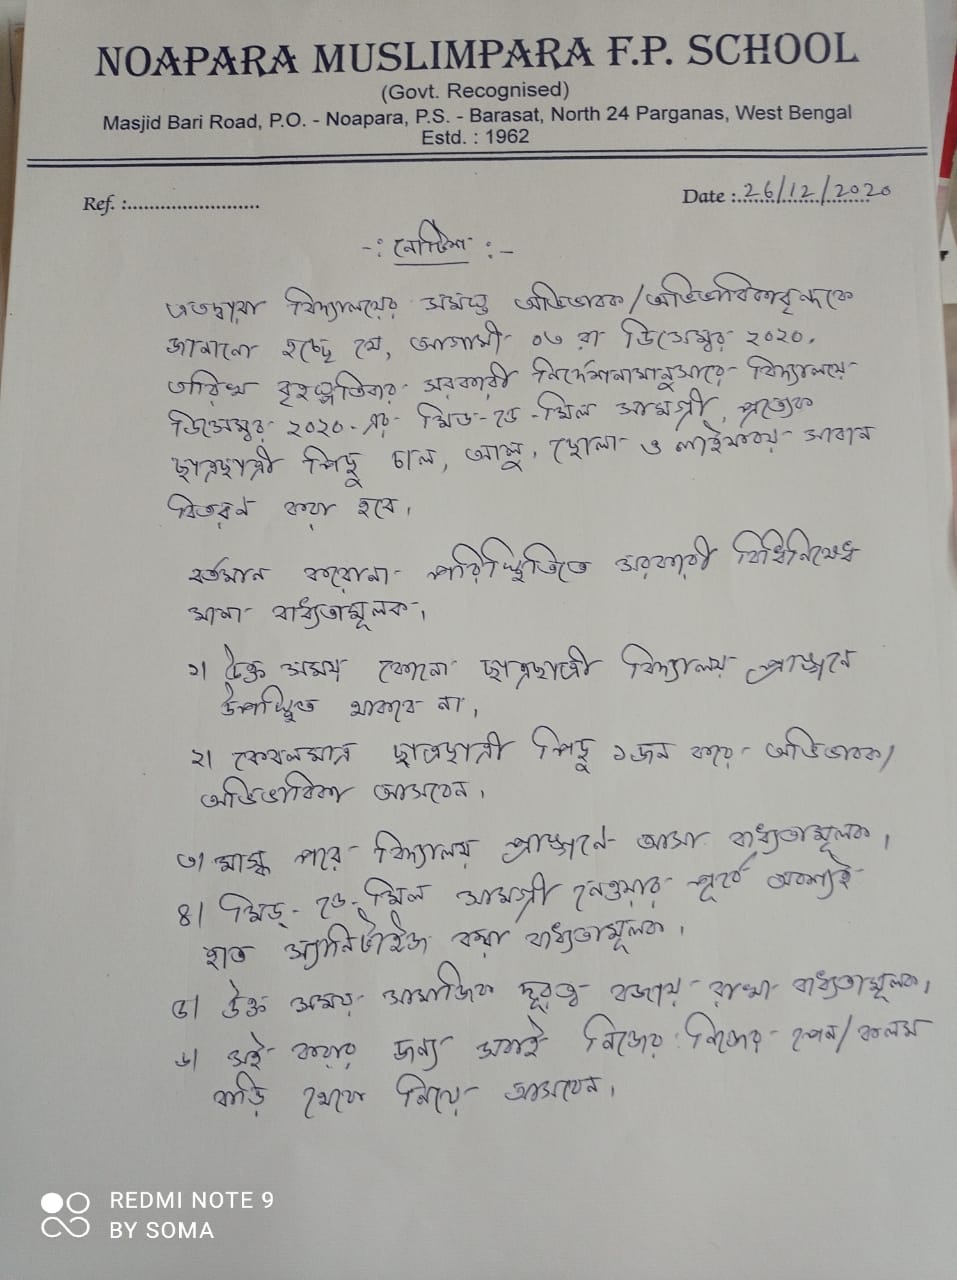 NOAPARA MUSLIMPARA F.P. SCHOOL
(Govt. Recognised)
Masjid Bari Road, P.O. - Noapara, P.S. - Barasat, North 24 Parganas, West Bengal
Estd. : 1962
Ref. :........................
Date : 26/12/2020
-: নোটিশ :-
এতদ্বারা বিদ্যালয়ের সমস্ত অভিভাবক/অভিভাবিকাবৃন্দকে
জানানো হচ্ছে যে, আগামী ০৩ রা ডিসেম্বর ২০২০,
তারিখ বৃহস্পতিবার সরকারী নির্দেশনামানুসারে বিদ্যালয়ে
ডিসেম্বর ২০২০-এর মিড-ডে-মিল সামগ্রী, প্রত্যেক
ছাত্রছাত্রী পিছু চাল, আলু, ছোলা ও লাইফবয় সাবান
বিতরণ করা হবে।
বর্তমান করোনা পরিস্থিতিতে সরকারী বিধিনিষেধ
মানা বাধ্যতামূলক।
১। উক্ত সময় কোনো ছাত্রছাত্রী বিদ্যালয় প্রাঙ্গনে
উপস্থিত থাকবে না।
২। কেবলমাত্র ছাত্রছাত্রী পিছু ১জন করে অভিভাবক/
অভিভাবিকা আসবেন।
৩। মাস্ক পরে বিদ্যালয় প্রাঙ্গনে আসা বাধ্যতামূলক।
৪। মিড্-ডে-মিল সামগ্রী নেওয়ার পূর্বে অবশ্যই
হাত স্যানিটাইজ করা বাধ্যতামূলক।
৫। উক্ত সময় সামাজিক দূরত্ব বজায় রাখা বাধ্যতামূলক।
৬। সই করার জন্য সবাই নিজের নিজের পেন/কলম
বাড়ি থেকে নিয়ে আসবেন।
REDMI NOTE 9
BY SOMA